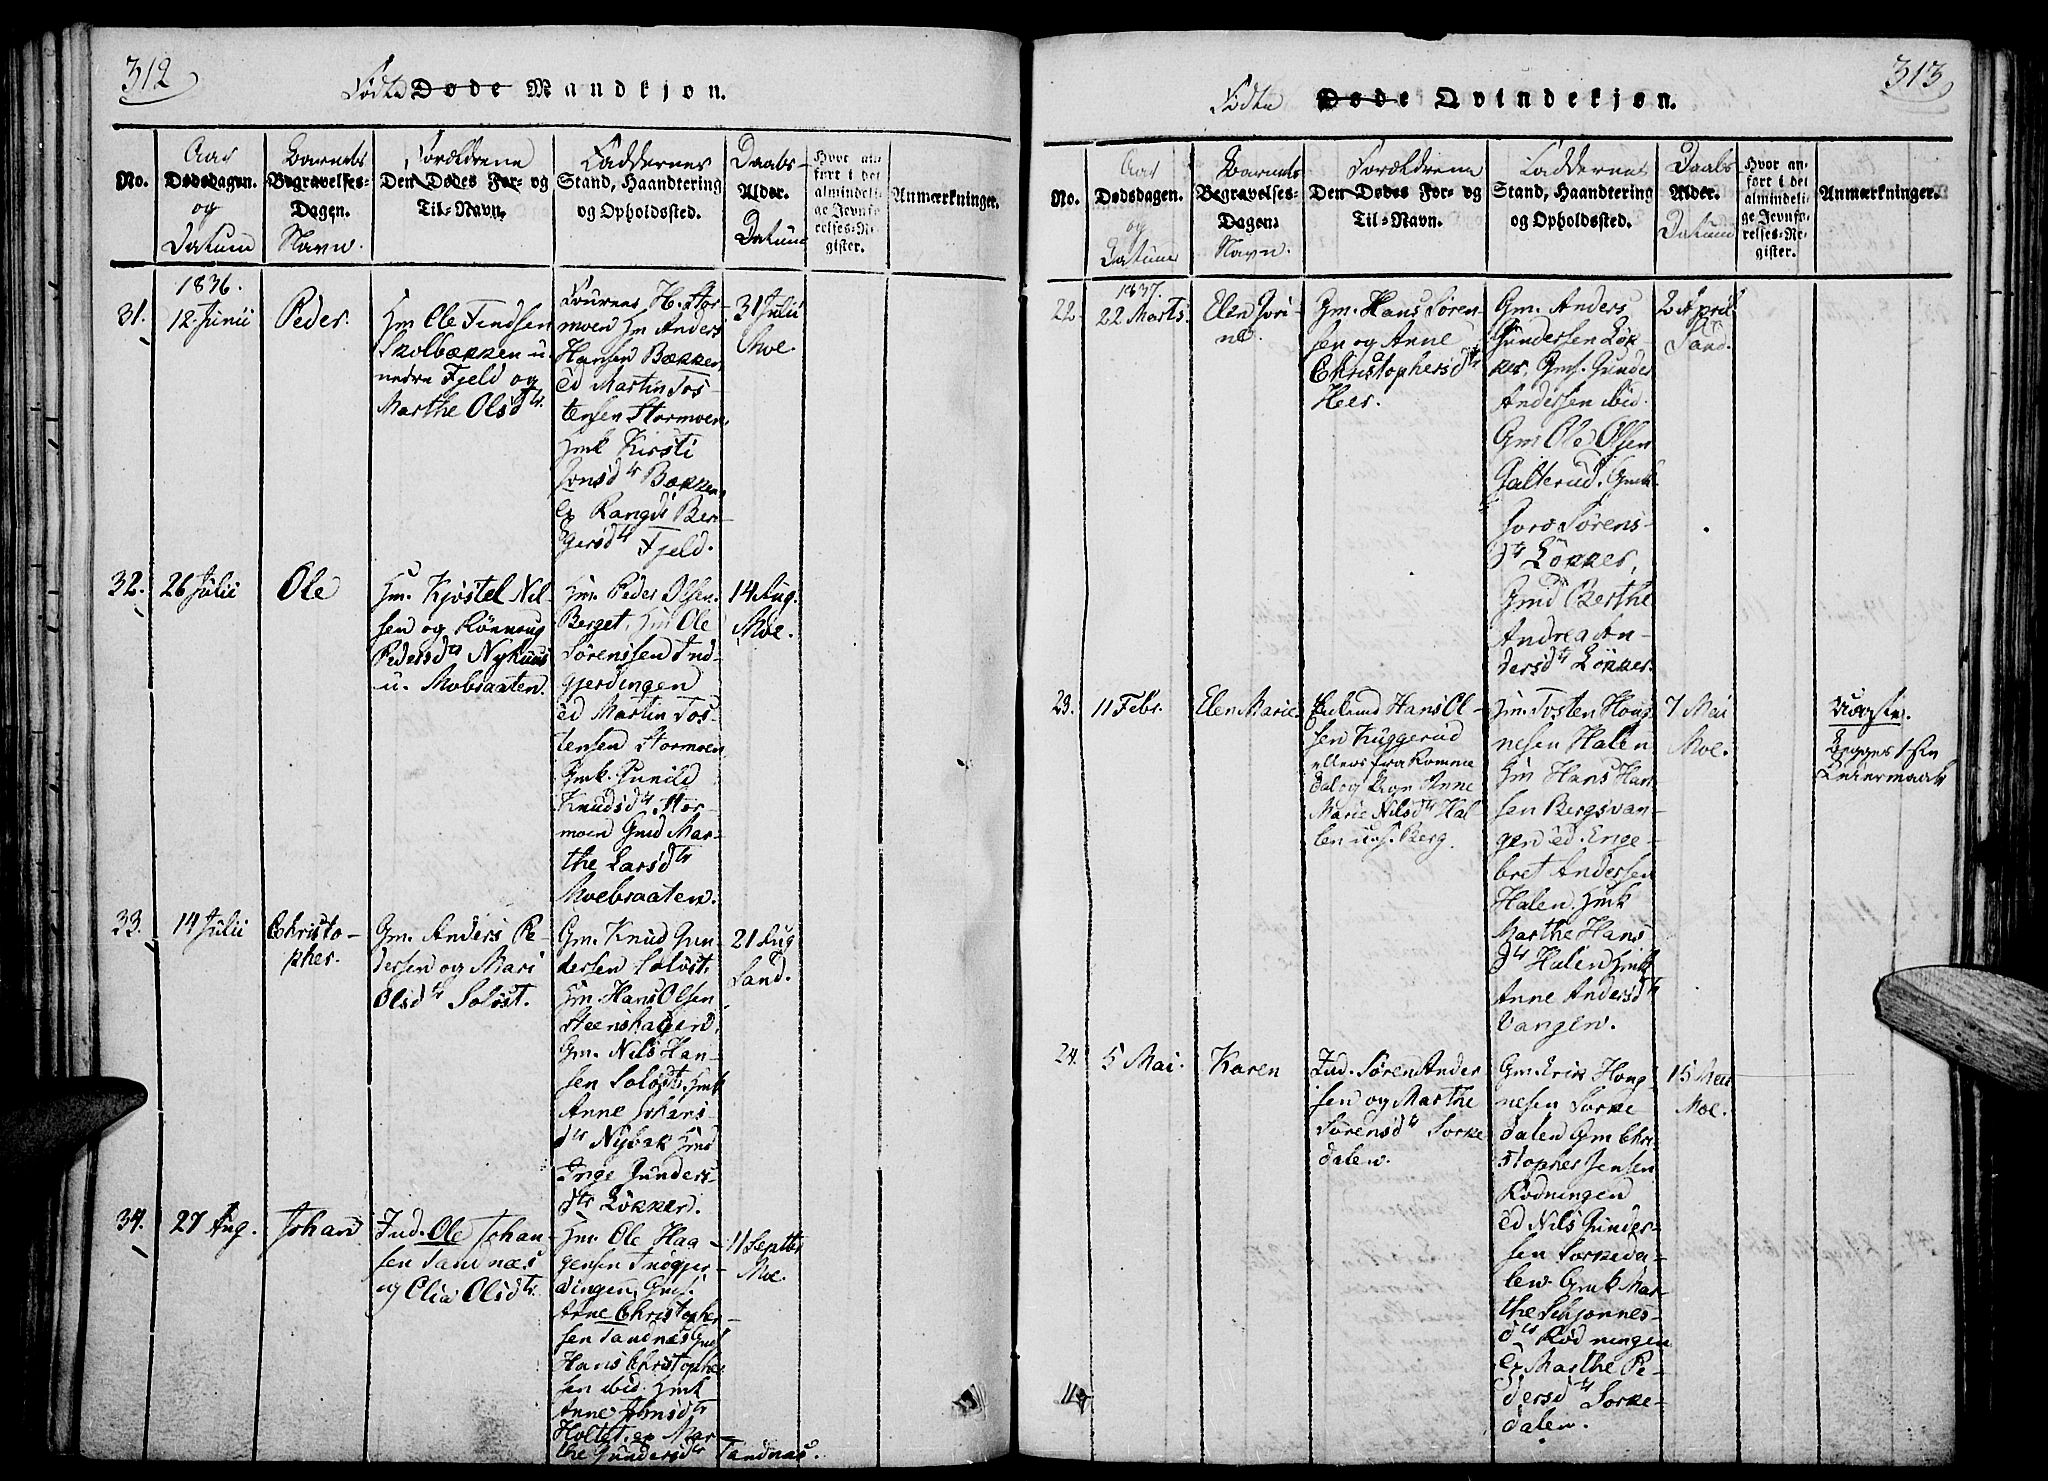 312
Fødte Døde Mandkjøn.
No.
Aar
Dødsdagen.
og
Datum
Barnets
Begravelses-
Dagen.
Navn.
Forældrene
Den Dødes For- og
Til-Navn.
Faddernes
Stand, Haandtering
og Opholdssted.
Daabs-
Alder.
Datum
Hvor an-
ført i det
almindeli-
ge Jevnfø-
relses-Re-
gister.
Anmærkninger.
1836.
31.
12. Junii
Peder.
Hm Ole Findsen
Skolbækken u.
nedre Fjeld og
Marthe Olsdtr.
Hm Anders
Hansen Bækken
ed Martin Tos-
tensen Stormoen,
Hmk Kirsti
Jonsdtr Bækken,
Fjeld.
31 Julii
Moe.
32.
26 Julii
Ole
Hm. Kjøstel Nil-
sen og Rønnoug
Pedersdtr Nyhuus
u. Mobraaten.
Hm. Peder Olsen
Berget, Hm Ole
Sørenssen Ind-
gjerdingen
ed Martin Tos-
tensen Stormoen
Gmk. Gunild
Knudsdtr. Stor-
moen Gmd Mar-
the Larsdtr
Moebraaten.
14 Aug.
Moe.
33.
14 Julii
Christo-
pher.
Gm. Anders Pe-
dersen og Mari
Olsdtr Soløst.
Gm. Knud Gun-
dersen Soløst.
Hm. Hans Olsen
Steenshagen.
Gm. Nils Han-
sen Soløst, Hmk
Anne Johans-
dtr Nybak Hmd
Inge Gunders-
dtr Løkker.
21 Aug
Sand.
34.
27 Aug.
Johan
Ind. Ole Johan-
sen Sandnæs
og Olia Olsdtr.
Hm. Ole Haa-
gensen Indgjer-
dingen, Gms.
Arne Christopher-
sen Sandnæs
Hans Christopher-
sen ibid. Hmk
Anne Jonsdtr
Holtet. ep Mar-
the Gundersdtr Sandnæs.
11 Septbr
Moe.
313
Fødte Døde Qvindekjøn.
No.
Aar
Dødsdagen.
og
Datum
Barnets
Begravelses-
Dagen.
Navn.
Forældrene
Den Dødes For- og
Til-Navn.
Faddernes
Stand, Haandtering
og Opholdssted.
Daabs
Alder.
Datum
Hvor an-
ført i det
almindeli-
ge Jevnfø-
relses-Re-
gister.
Anmærkninger.
1837.
22.
22 Marts.
Elen Jori-
ne.
Gm. Hans Søren-
sen og Anne
Christophersdtr
Heer.
Gm. Anders
Gundersen Løk-
ker, Gms. Gunder
Andersen ibid.
Gm Ole Olsen
Galterud. Gmk.
Joro Sørens-
dtr Løkker,
Gmd Berthe
Andrea An-
dersdtr Løkker.
2 April
Sand.
23.
11 Febr.
Elen Marie
Hans Ol-
sen Kuggerud
ellers fra Romme
dal og Pige Anne
Marie Nilsdtr Hal-
len u/s. Berg.
Hm. Tosten Haag-
nesen Halen
Hm Hans Han-
sen Bergsvan-
gen ed. Enge-
bret Andersen
Halen. Hmk
Marthe Hans
dtr Halen Hmk
Anne Andersdtr
Vangen.
7 Mai
Moe.
Uægte.
Begges 1ste
Leiermaal
24.
5 Mai.
Karen
Ind. Søren Ander
sen og Marthe
Sørensdtr Sorke
dalen.
Gm. Erik Haag
nesen Sorke
dalen Gm Chri-
stopher Jensen
Rodningen
ed Nils Gunder-
sen Sorkeda-
len. Gmk Mar-
the Schjønnes-
dtr Rodningen
ep Marthe Pe-
dersdtr Sorke-
dalen.
15 Mai
Moe.